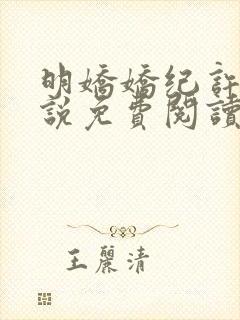 明嬌嬌紀許
說免費閱讀
王麗清